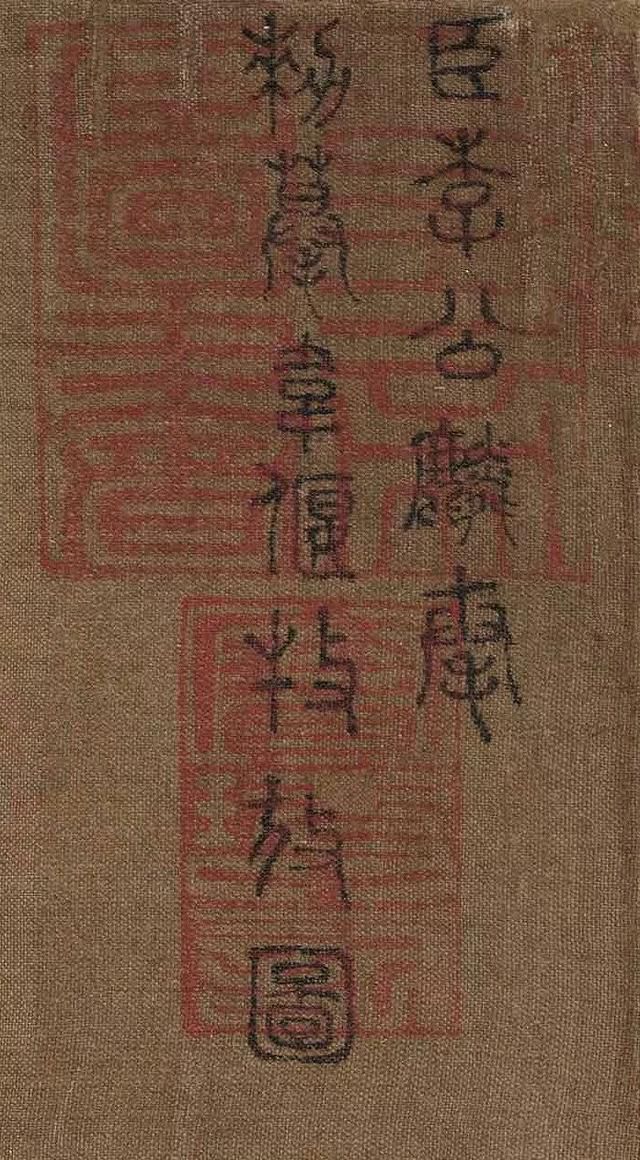 臣李公麟奉
敕摹韋偃牧放圖